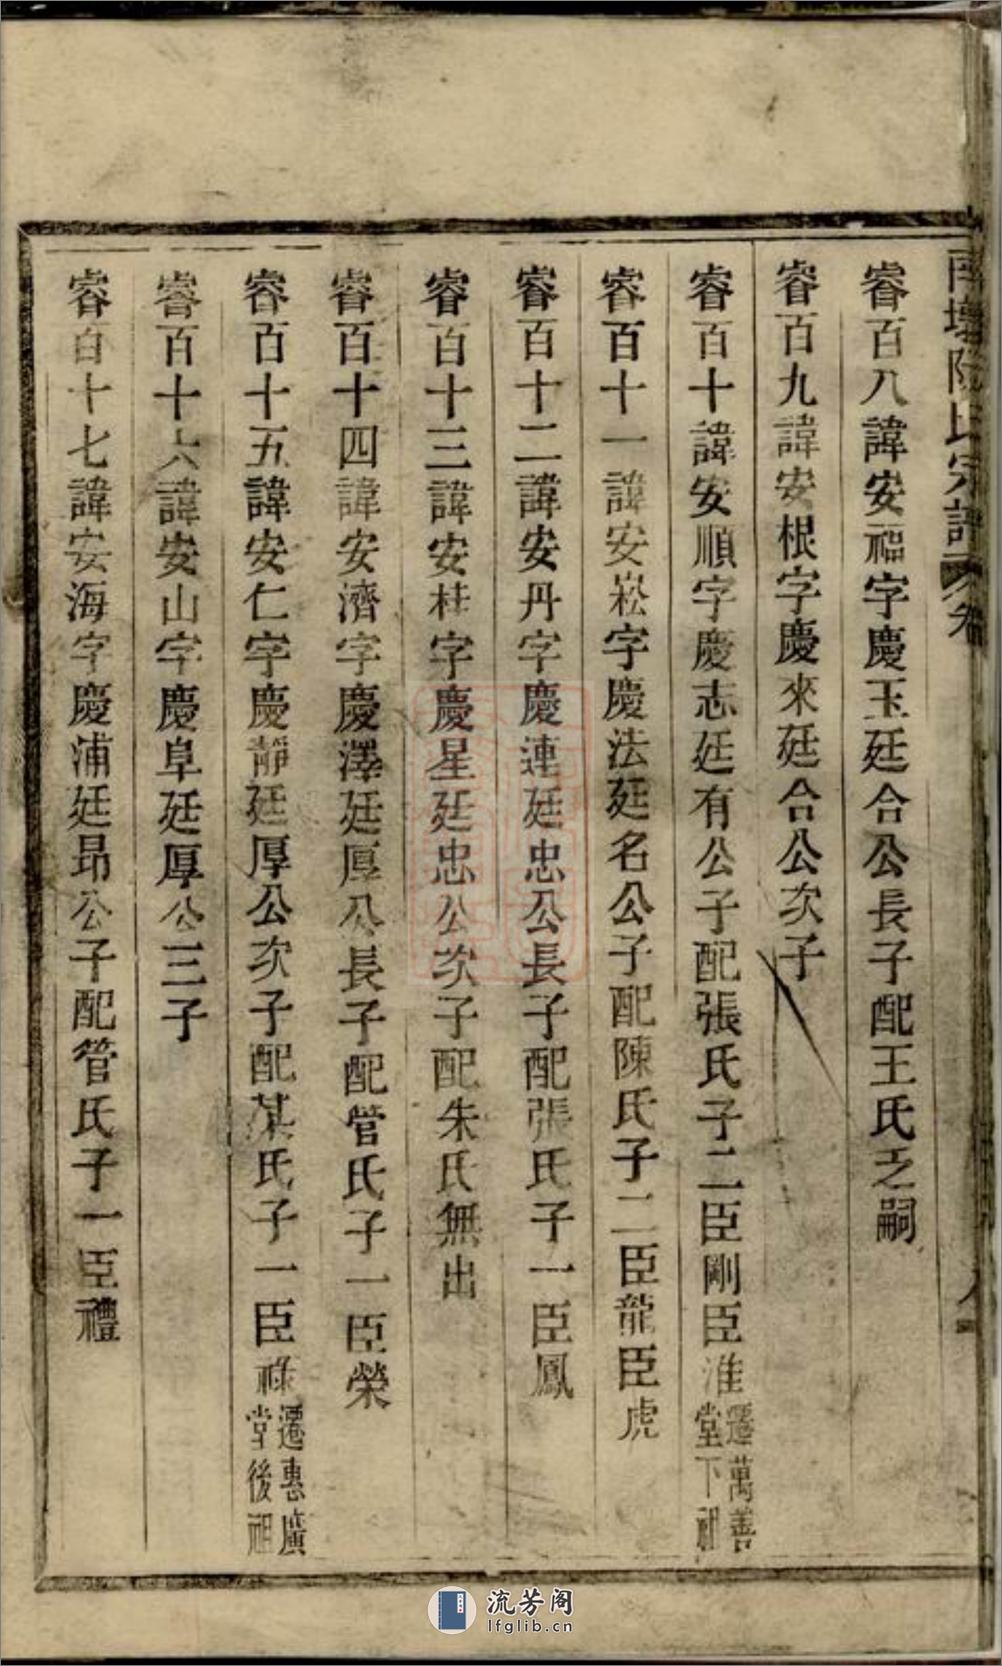 宗譜 卷
睿百八諱安福字慶玉廷合公長子配王氏乏嗣
睿百九諱安根字慶來廷合公次子
睿百十諱安順字慶志廷有公子配張氏子二臣剛臣淮遷萬善堂下祖
睿百十一諱安崧字慶法廷名公子配陳氏子二臣龍臣虎
睿百十二諱安丹字慶連廷忠公長子配張氏子一臣鳳
睿百十三諱安桂字慶星廷忠公次子配朱氏無出
睿百十四諱安濟字慶澤廷厚公長子配管氏子一臣榮
睿百十五諱安仁字慶靜廷厚公次子配某氏子一臣祿遷惠廣堂後祖
睿百十六諱安山字慶阜廷厚公三子
睿百十七諱安海字慶浦廷昂公子配管氏子一臣禮
流芳阁
lfglib.cn